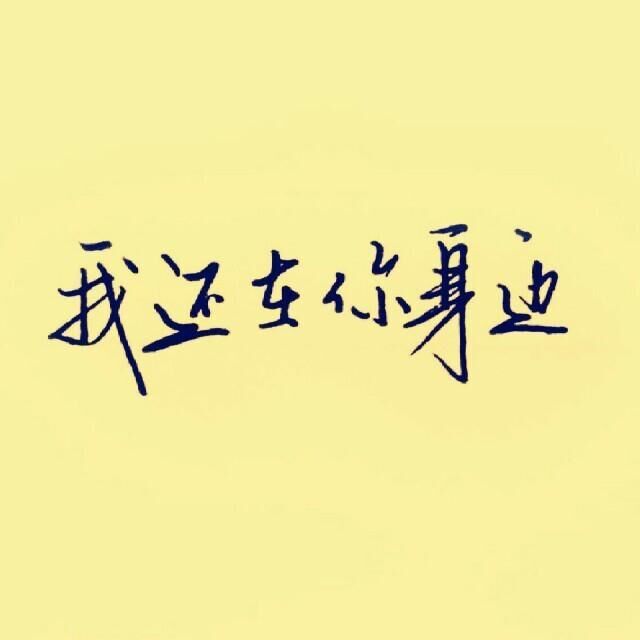 我还在你身边